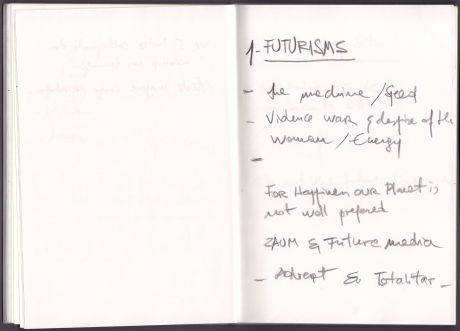 1- FUTURISMS
- the machine / Speed
- Violence war & despise of the
Woman / Energy
-
For Happiness our Planet is
not well prepared
ZAUM & Future media
- & Totalitar -